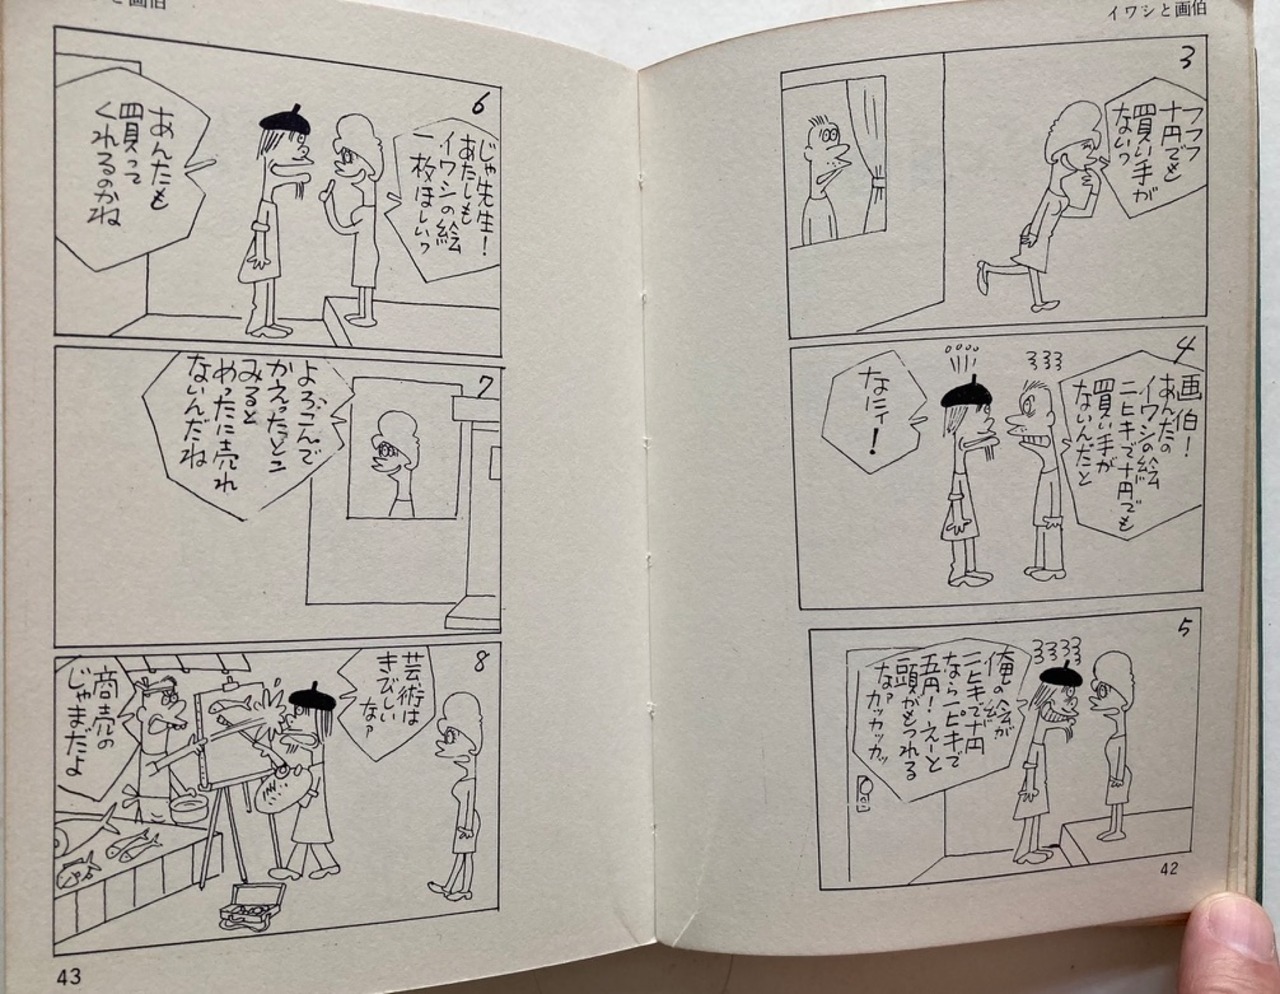 イワシと画伯
3
フフフ
十円でも
買い手が
ないっ
4
画伯!
あんたの
イワシの絵
ニヒキで十円でも
買い手が
ないんだと
なにィ!
5
俺の絵が
ニヒキで十円
なら一ピキで
五円!えーと
頭がもつれる
なァ
カッカッカッ
42
と画伯
6
じゃ先生!
あたしも
イワシの絵
一枚ほしいっ
あんたも
買って
くれるのかね
7
よろこんで
かえったとこ
みると
めったに売れ
ないんだね
8
芸術は
きびしい
なァ
商売の
じゃまだよ
43